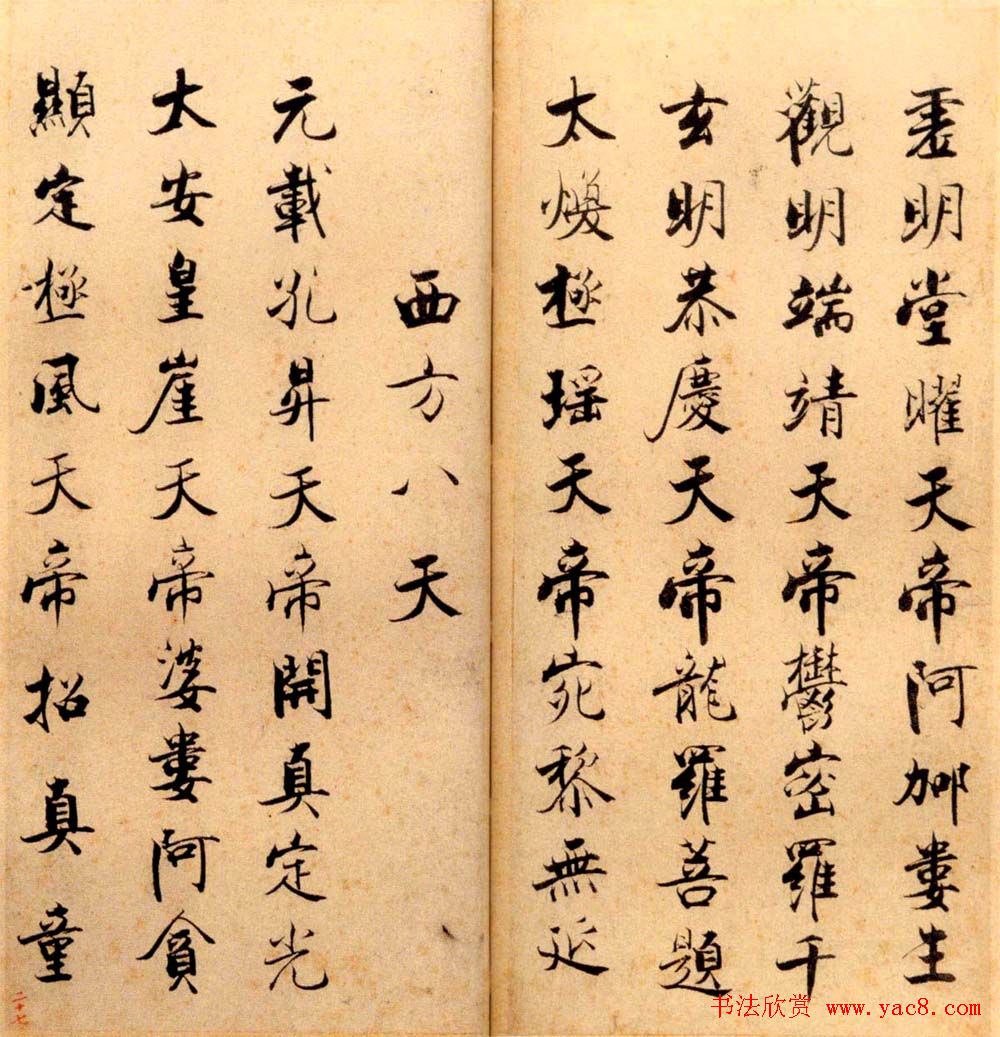 虛明堂曜天帝阿那婁生
觀明端靖天帝鬱密羅千
玄明恭慶天帝龍羅菩題
太煥極瑤天帝宛黎無延
西方八天
元載孔昇天帝開真定光
太安皇崖天帝婆婁阿貪
顯定極風天帝招真童
二十七
书法欣赏 www.yac8.com